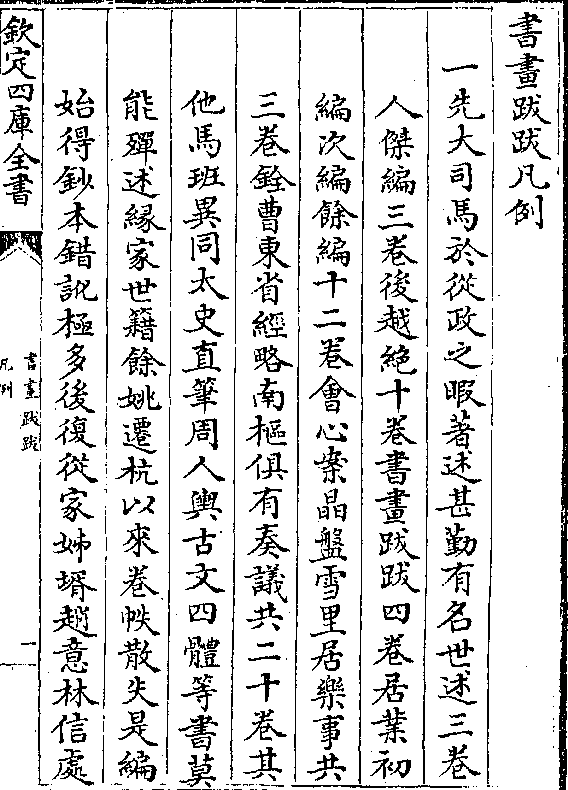 書畫跋跋凡例
一先大司馬於從政之暇著述甚勤有名世述三卷
人傑編三卷後越絶十卷書畫跋跋四卷居業初
編次編餘編十二卷㑹心案晶盤雪里居樂事共
三卷銓曹東省經略南樞俱有奏議共二十卷其
他馬班異同太史直筆周人輿古文四體等書莫
能殫述緣家世籍餘姚遷杭以來卷帙散失是編
始得鈔本錯訛極多後復從家姊壻趙意林信處
欽定四庫全書
書畫跋跋
凡例
一